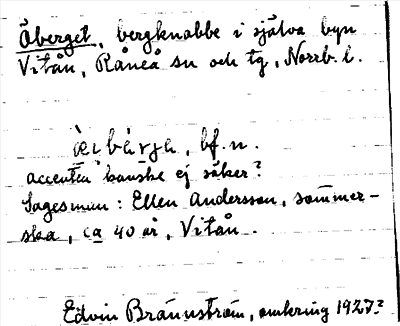 Åberget, bergknabbe i själva byn
Vitån, Råneå sn och tg, Norrb. l.
bf. n.
accenten kanske ej säker?
Sagesman: Ellen Andersson, sömmer-
ska, ca 40 år, Vitån.
Edvin Brännström, omkring 1927?